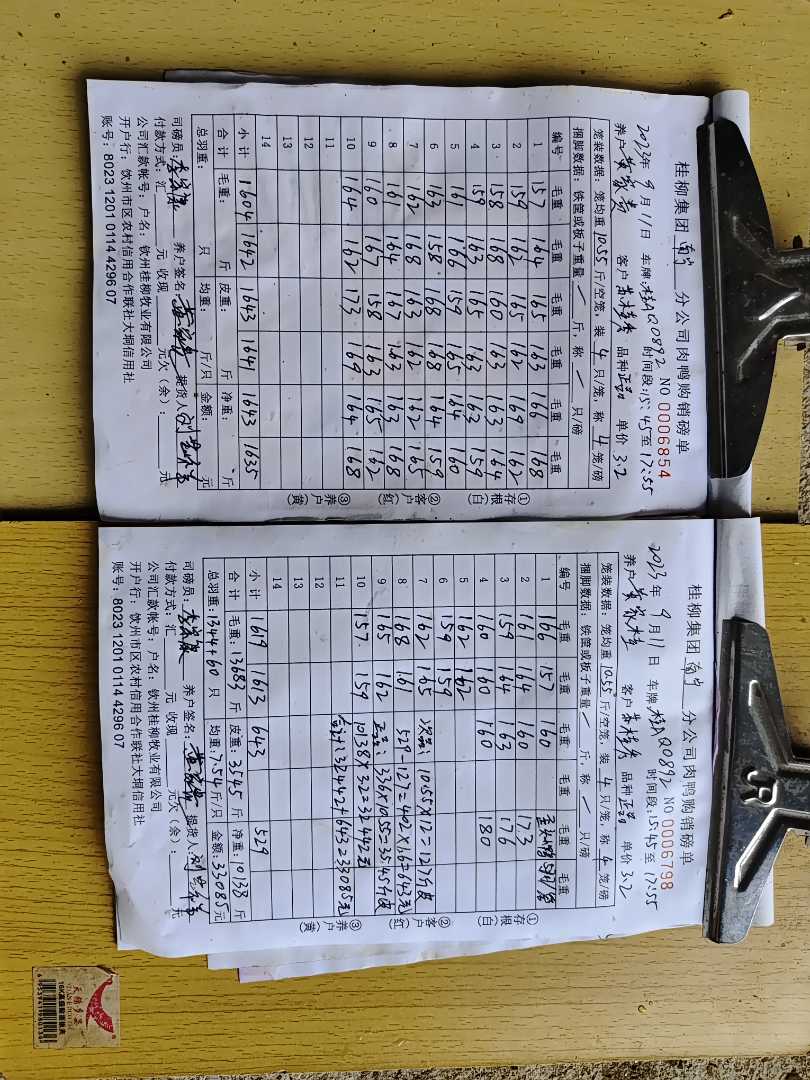 桂柳集团南宁分公司肉鸭购销磅单
2023年9月11日 车牌:桂AQ0892 NO 0006854
养户 客户 品种正品 时间段:15:45至17:55 单价3.2
笼装数据:笼均重10.55斤/空笼,装4只/笼,称4笼/磅
捆脚数据:铁筐或板子重量/斤,称/只/磅
编号 毛重 毛重 毛重 毛重 毛重 毛重
1 157 164 165 163 166 168
2 159 162 165 162 169 162
3 158 168 160 163 163 164
4 159 163 165 163 163 159
5 161 166 159 165 164 160
6 163 158 168 168 164 159
7 162 168 163 162 162 165
8 161 164 167 163 163 168
9 160 167 158 163 165 162
10 164 162 173 169 164 168
11
12
13
14
小计 1604 1642 1643 1641 1643 1635
合计 毛重: 斤 皮重: 斤 净重: 斤
总羽重: 只 均重: 斤/只 金额: 元
司磅员: 养户签名: 提货人:
付款方式:汇 元 收现 元欠(余): 元
公司汇款帐号:户名:钦州桂柳牧业有限公司
开户行:钦州市区农村信用合作联社大垌信用社
账号:8023 1201 0114 4296 07
①存根(白) ②客户(红) ③养户(黄)
桂柳集团南宁分公司肉鸭购销磅单
2023年9月11日 车牌:桂AQ0892 NO 0006798
养户 客户 品种正品 时间段:15:45至17:55 单价3.2
笼装数据:笼均重10.55斤/空笼,装4只/笼,称4笼/磅
捆脚数据:铁筐或板子重量/斤,称/只/磅
编号 毛重 毛重 毛重 毛重 毛重 毛重
1 166 157 160
2 161 164 160 173
3 159 164 163 176
4 160 160 160 180
5 162 162
6 159 159
7 162 165 次品:10.55×12=127斤皮
8 168 161 529-127=402×1.6=643元
9 165 162 正品:336×10.55=3545斤皮
10 157 159 10138×3.2=32442元
11 合计:32442+643=33085元
12
13
14
小计 1619 1613 643 529
合计 毛重:13683斤 皮重:3545斤 净重:10138斤
总羽重:1344+60只 均重:7.54斤/只 金额:33085元
司磅员: 养户签名: 提货人:
付款方式:汇 元 收现 元欠(余): 元
公司汇款帐号:户名:钦州桂柳牧业有限公司
开户行:钦州市区农村信用合作联社大垌信用社
账号:8023 1201 0114 4296 07
①存根(白) ②客户(红) ③养户(黄)